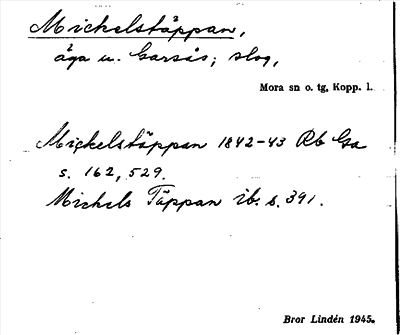 Mickelstäppan,
äga u. Garsås; slog,
Mora sn o. tg, Kopp. l.
Mickelstäppan 1842-43 Rb Ga
s. 162, 529.
Mickels Täppan ib. s. 391.
Bror Lindén 1945.